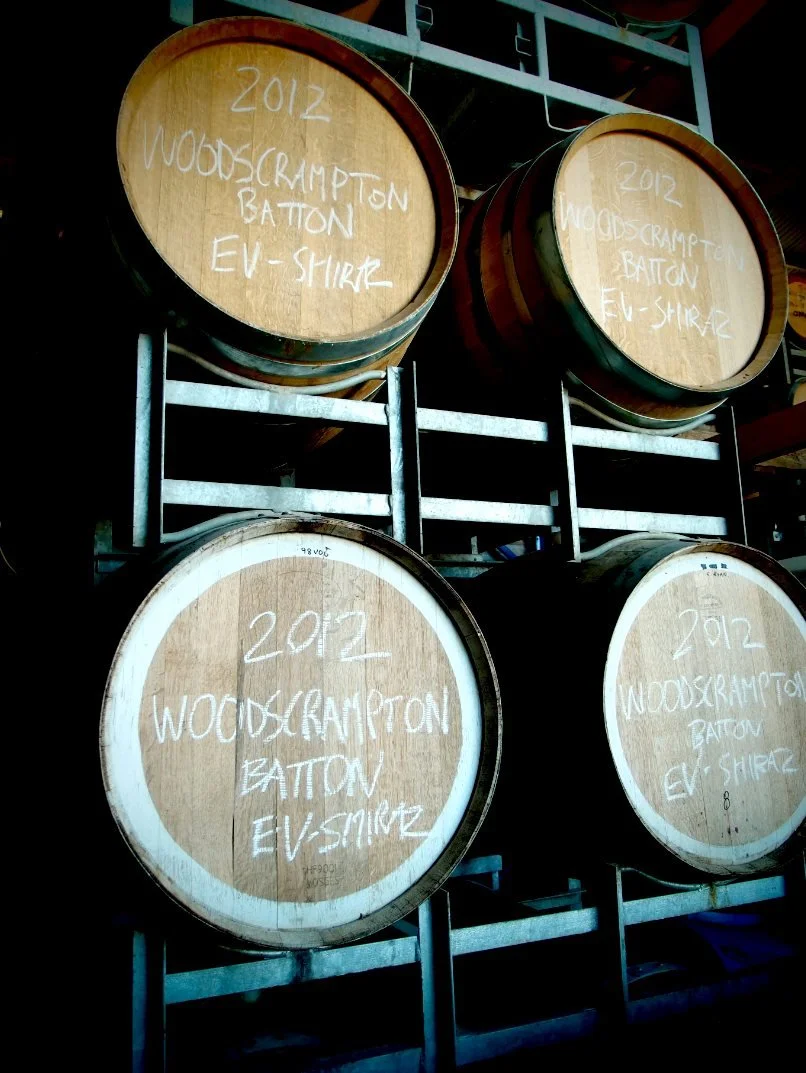 2012
WOODSCRAMPTON
BATTON
EV-SHIRAZ
2012
WOODSCRAMPTON
BATTON
EV-SHIRAZ
2012
WOODSCRAMPTON
BATTON
EV-SHIRAZ
2012
WOODSCRAMPTON
BATTON
EV-SHIRAZ
8